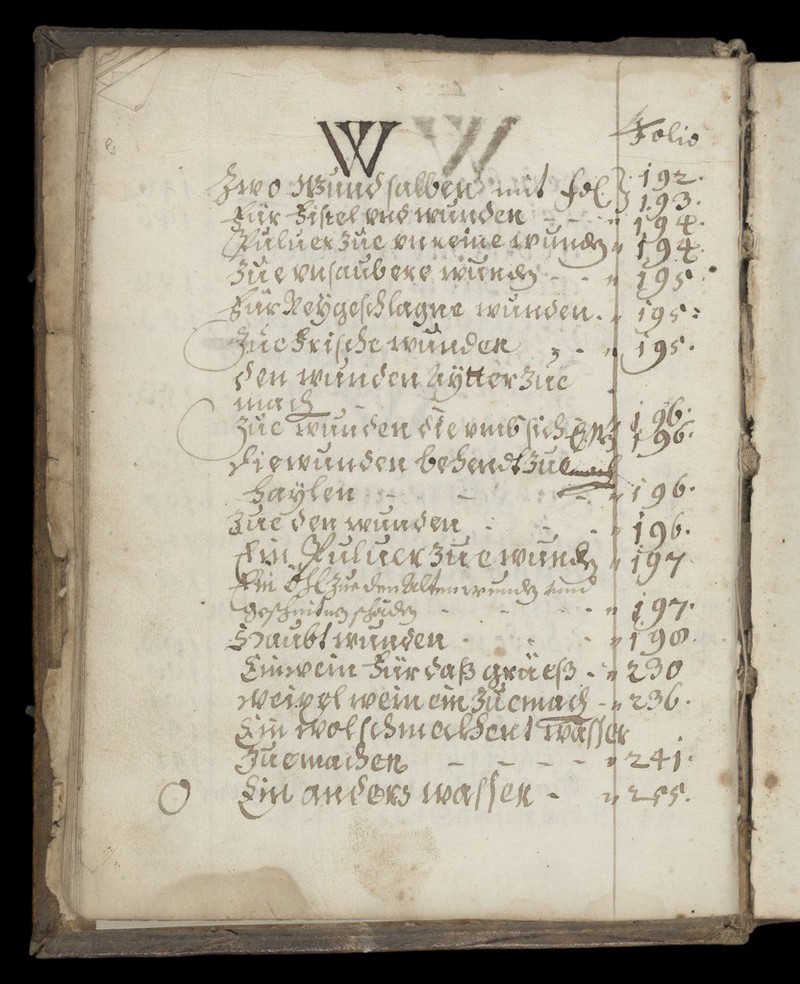 W
Folio
Zwo Wundsalben mit fol. 192.
193.
Für Fistel vnd wunden - - " 194.
Puluer Zue vnreine wunden " 194.
Zue vnsaubere wunden - - " 195
Für Neygeschlagne wunden. " 195:
Zue Frische wunden - " 195.
den wunden Aÿtter Zue
mach 196.
Zue wunden die vmb sich 196.
die wunden behendt Zue
haylen - - - " 196.
Zue den wunden - - " 196.
Ein Puluer Zue wunden " 197
Ein Öhl Zue den Alten wunden vnd
geschnitnen schäden - - - " 197.
Haubt wunden - - - " 198.
Ein wein Für daß grüeß - " 230
weixel wein ein Zuemach - " 236.
Ein wolschmackhent wasser
Zuemachen - - - - " 241.
Ein anders wasser - " 255.